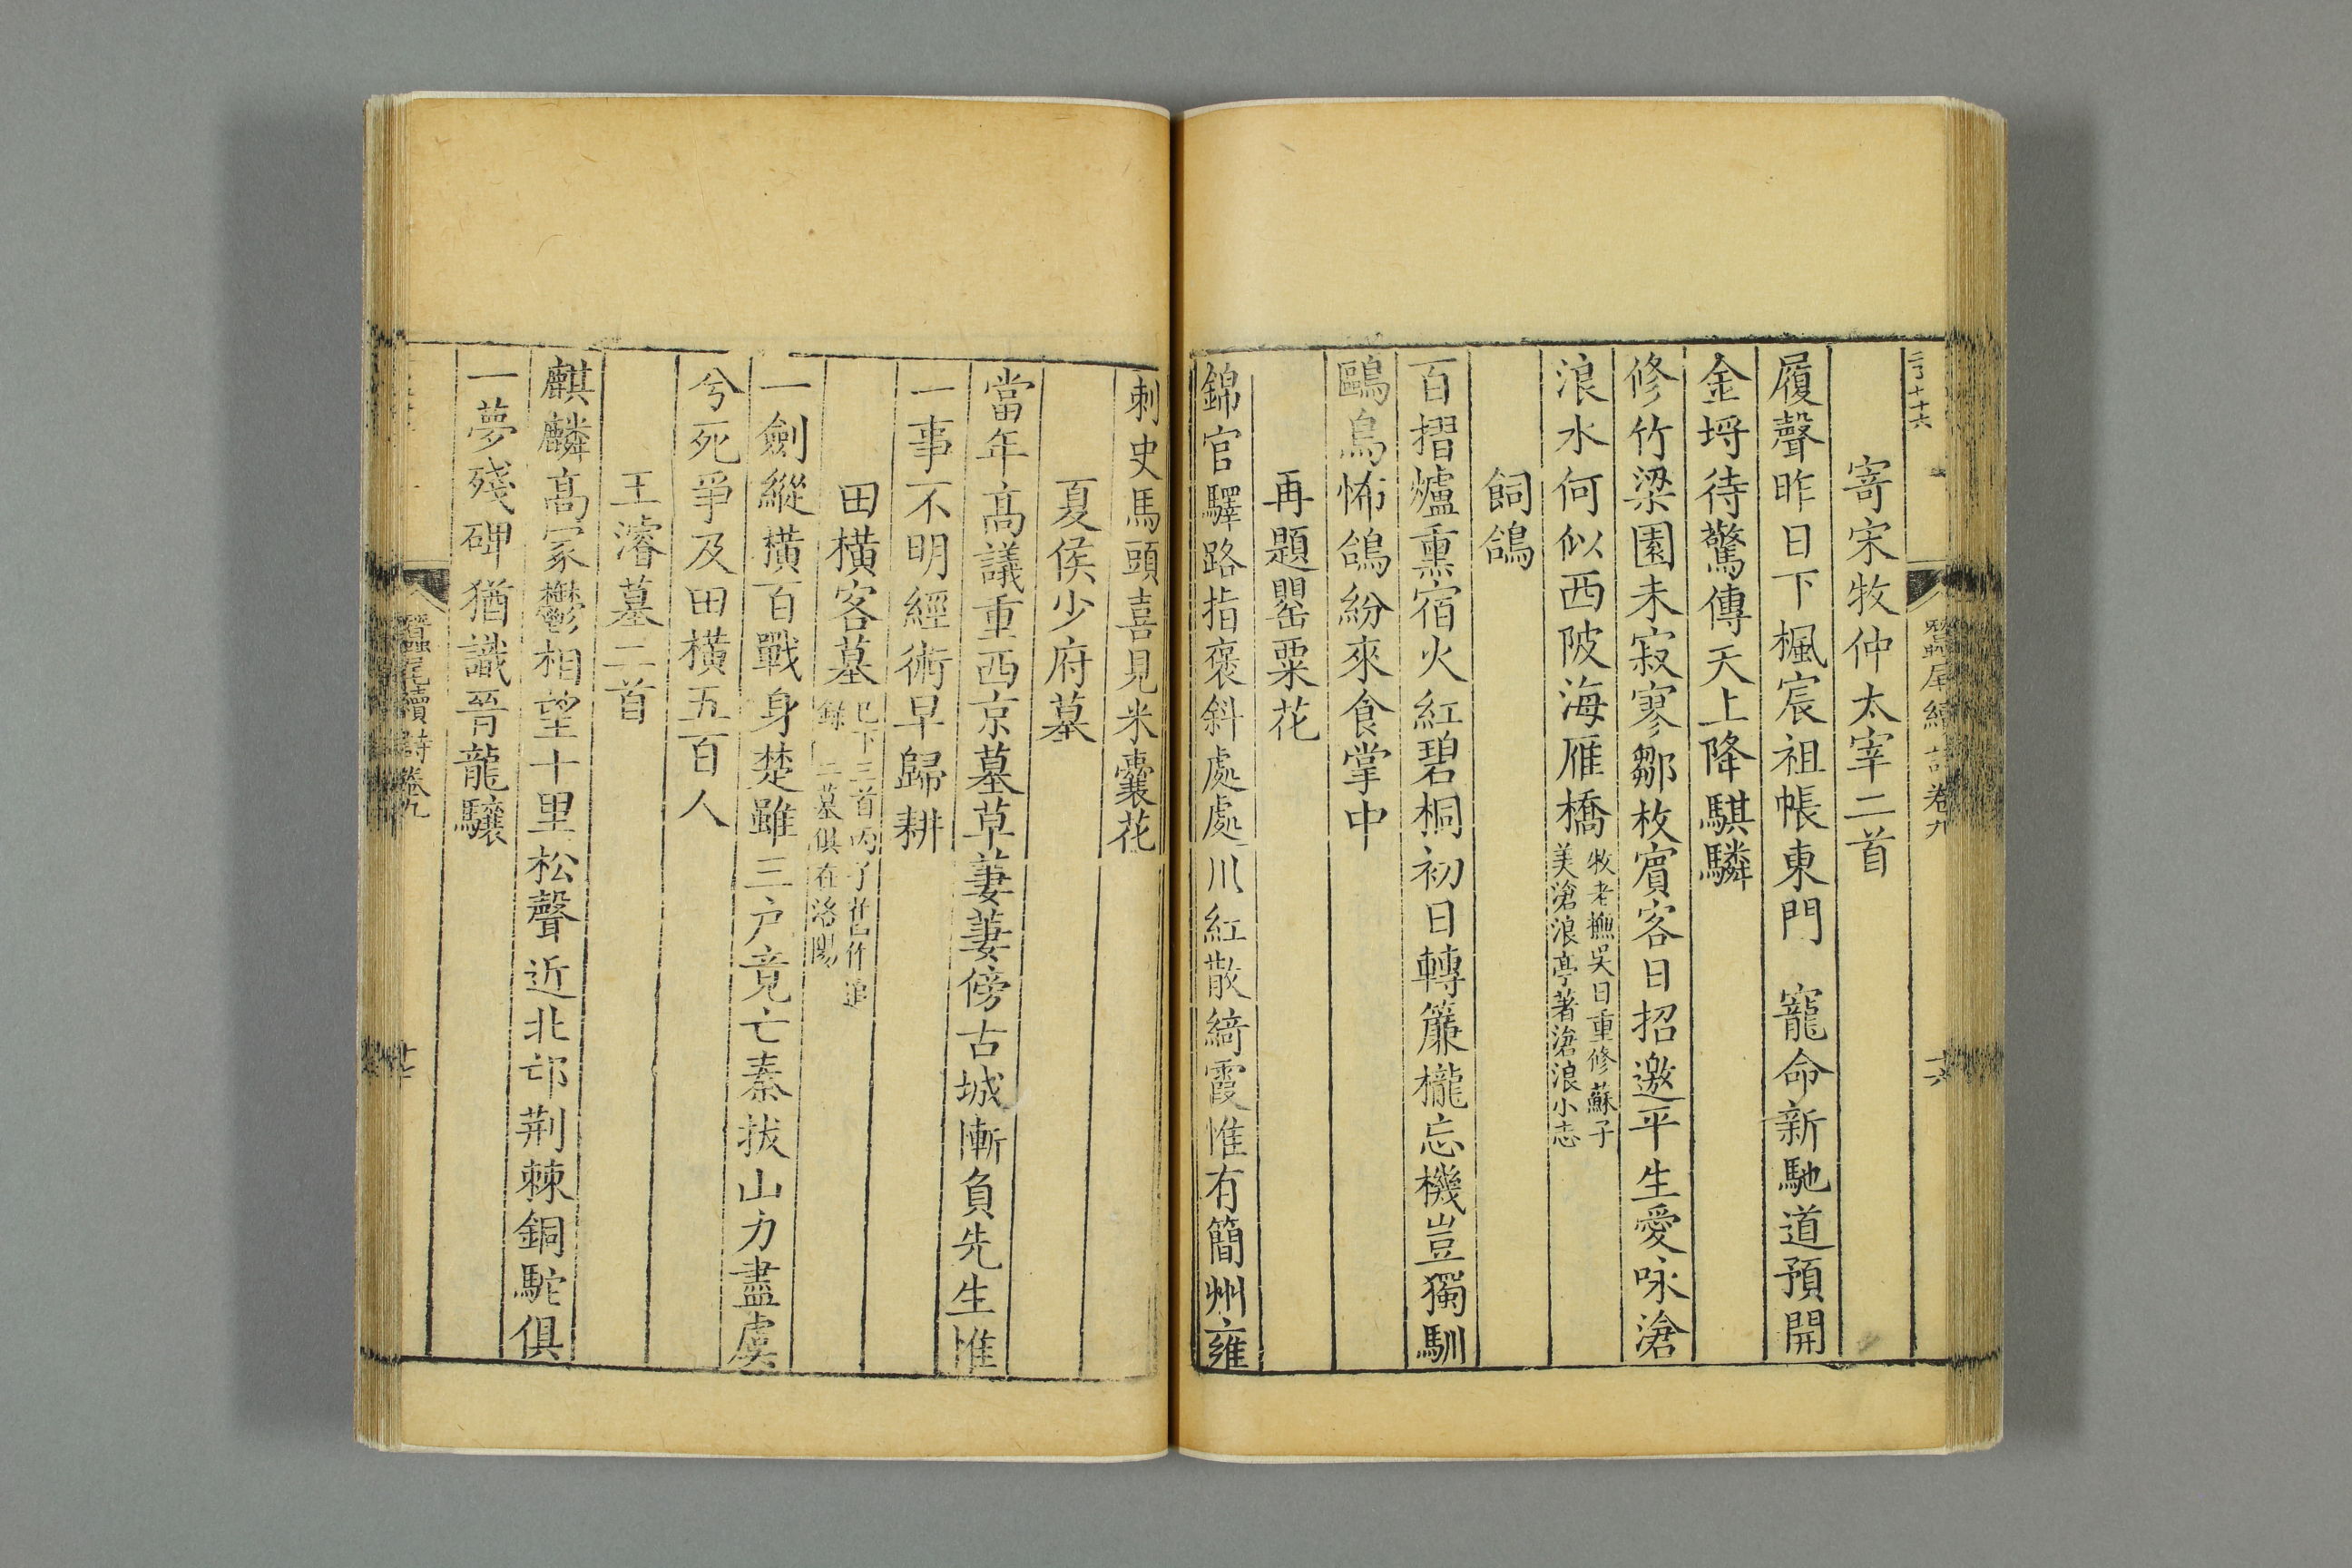 寄宋牧仲太宰二首
履聲昨日下楓宸祖帳東門 寵命新馳道預開
金埒待驚傳天上降騏驎
修竹梁園未寂寥鄒枚賓客日招邀平生愛咏滄
浪水何似西陂海雁橋
牧老撫吳日重修蘇子
美滄浪亭著滄浪小志
飼鴿
百摺爐熏宿火紅碧桐初日轉簾櫳忘機豈獨馴
鷗鳥怖鴿紛來食掌中
再題罌粟花
錦官驛路指褒斜處處川紅散綺霞惟有簡州雍
刺史馬頭喜見米囊花
夏侯少府墓
當年高議重西京墓草萋萋傍古城慚負先生惟
一事不明經術早歸耕
田橫客墓
已下三首丙子舊作追
錄 二墓俱在洛陽
一劍縱橫百戰身楚雖三户竟亡秦拔山力盡虞
兮死爭及田橫五百人
王濬墓二首
麒麟高冢鬱相望十里松聲近北邙荆棘銅駝俱
一夢殘碑猶識晉龍驤
蠶尾續詩卷九